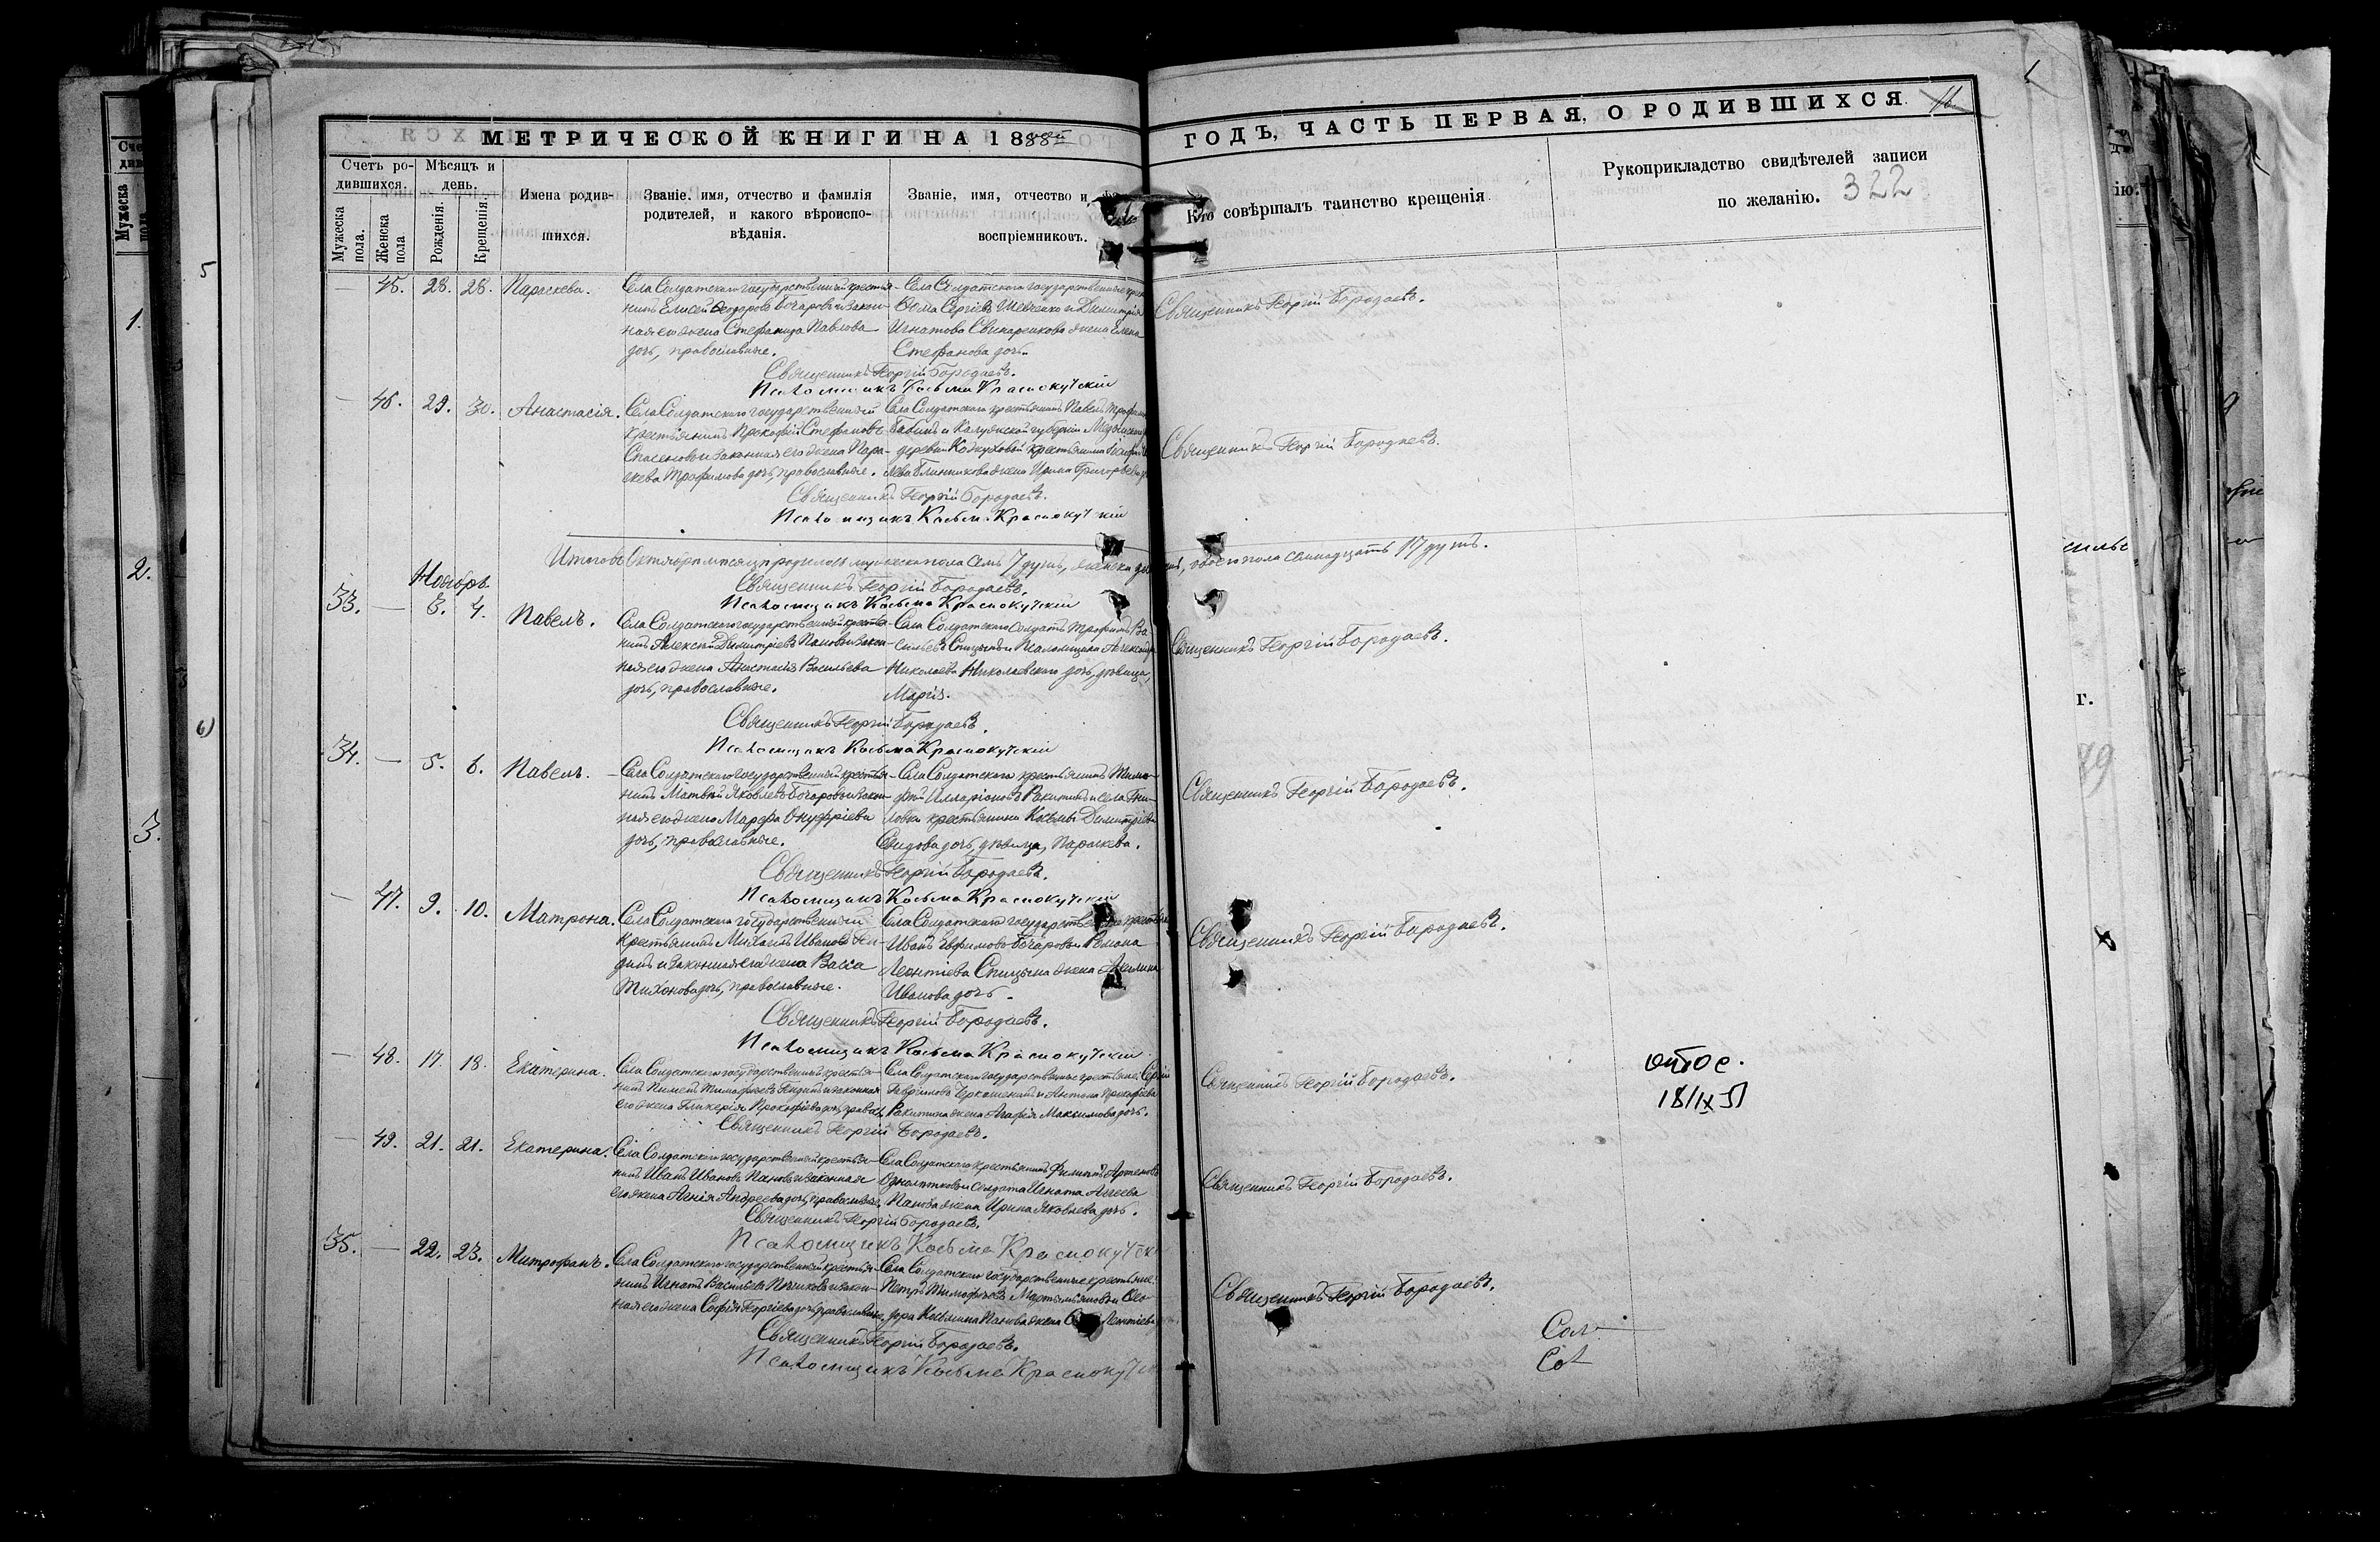 МЕТРИЧЕСКОЙ КНИГИ НА 1888й
ГОДЪ, ЧАСТЬ ПЕРВАЯ, О РОДИВШИХСЯ.
Счетъ ро-
дившихся.
Мужеска
пола.
Женска
пола
Мѣсяцъ и
день.
Рожденія.
Крещенія.
Имена родив-
шихся.
Званіе, имя, отчество и фамилія
родителей, и какого вѣроиспо-
вѣданія.
Званіе, имя, отчество и
воспріемниковъ.
Кто совѣршалъ таинство крещенія
Рукоприкладство свидѣтелей записи
по желанію.
322
— 45. 28. 28. Параскева.
Села Солдатскаго государственный крестья-
нинъ Елисей Ѳеодоровъ Бочаровъ и закон-
ная его жена Стефанида Павлова
дочь, православные.
Села Солдатскаго государственные
Ѳома Сергіевъ Шевченко и Димитрія
Игнатова Свинаренкова жена Елена
Стефанова дочь.
Священникъ Георгій Бородаевъ.
Священникъ Георгій Бородаевъ.
Псаломщикъ Косьма Краснокутскій
— 46. 29. 30. Анастасія.
Села Солдатскаго государственный
крестьянинъ Прокофій Стефановъ
и законная его жена Пара-
скева Трофимова дочь, православные.
Села Солдатскаго крестьянинъ Павелъ
и Калужской губерніи
деревни крестьянина
жена Ирина Григорьева
Священникъ Георгій Бородаевъ.
Священникъ Георгій Бородаевъ.
Псаломщикъ Косьма Краснокутскій
Итого въ Октябрѣ мѣсяцѣ родилось мужеска пола семь 7 душъ, женска обоего пола семнадцать 17 душъ.
Священникъ Георгій Бородаевъ.
Псаломщикъ Косьма Краснокутскій
Ноябрь.
33. — 3. 4. Павелъ.
Села Солдатскаго государственный крестья-
нинъ Алексѣй Димитріевъ Пановъ и закон-
ная его жена Анастасія Васильева
дочь, православные.
Села Солдатскаго солдатъ Трофимъ Ва-
сильевъ Спицынъ и Псаломщика
Николаева Николаевскаго дочь, дѣвица,
Марія.
Священникъ Георгій Бородаевъ.
Священникъ Георгій Бородаевъ.
Псаломщикъ Косьма Краснокутскій
34. — 5. 6. Павелъ.
Села Солдатскаго государственный крестья-
нинъ Матвѣй Яковлевъ Бочаровъ и закон-
ная его жена Марѳа Онуфріева
дочь, православные.
Села Солдатскаго крестьянинъ Тимо-
фей Илларіоновъ Ракитинъ и села Гни-
ловки крестьянина Косьмы Димитріева
дочь, дѣвица, Параскева.
Священникъ Георгій Бородаевъ.
Священникъ Георгій Бородаевъ.
Псаломщикъ Косьма Краснокутскій
— 47. 9. 10. Матрона.
Села Солдатскаго государственный
крестьянинъ Михаилъ Ивановъ
и законная его жена Васса
Тихонова дочь, православные.
Села Солдатскаго
Иванъ Ефимовъ Бочаровъ и Романа
Леонтіева Спицына жена Акилина
Иванова дочь.
Священникъ Георгій Бородаевъ.
Священникъ Георгій Бородаевъ.
Псаломщикъ Косьма Краснокутскій
— 48. 17. 18. Екатерина.
Села Солдатскаго государственный крестья-
нинъ Пименъ Тимофеевъ и законная
его жена Гликерія Прокофіева дочь, правос.
Села Солдатскаго государственные крестьяне: Сергій
Гавриловъ и Антона Прокофіева
Ракитина жена Агафія Максимова дочь.
Священникъ Георгій Бородаевъ.
Священникъ Георгій Бородаевъ.
18/IX 51
— 49. 21. 21. Екатерина.
Села Солдатскаго государственный крестья-
нинъ Иванъ Ивановъ Пановъ и законная
его жена Андреева дочь, православные.
Села Солдатскаго крестьянинъ Филиппъ Артемовъ
и солдата Игната
Панова жена Ирина Яковлева дочь.
Священникъ Георгій Бородаевъ.
Священникъ Георгій Бородаевъ.
Псаломщикъ Косьма Краснокутск
35. — 22. 23. Митрофанъ.
Села Солдатскаго государственный крестья-
нинъ Игнатъ Васильевъ и закон-
ная его жена Софія Георгіева дочь, православные.
Села Солдатскаго государственные крестьяне:
Петръ Тимофеевъ Мартемьяновъ и Ѳео-
дора Космина Панова жена Леонтіева
Священникъ Георгій Бородаевъ.
Священникъ Георгій Бородаевъ.
Псаломщикъ Косьма Краснокутск